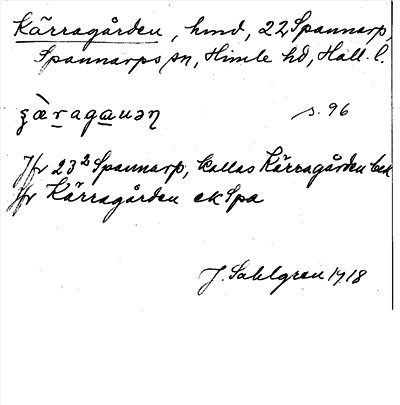 Kärragården, hmd, 22 Spannarp,
Spannarps sn, Himle hd, Hall. l.
s. 96
Jfr 23² Spannarp, kallas Kärragården
Jfr Kärragården ek Spa
J. Sahlgren 1918